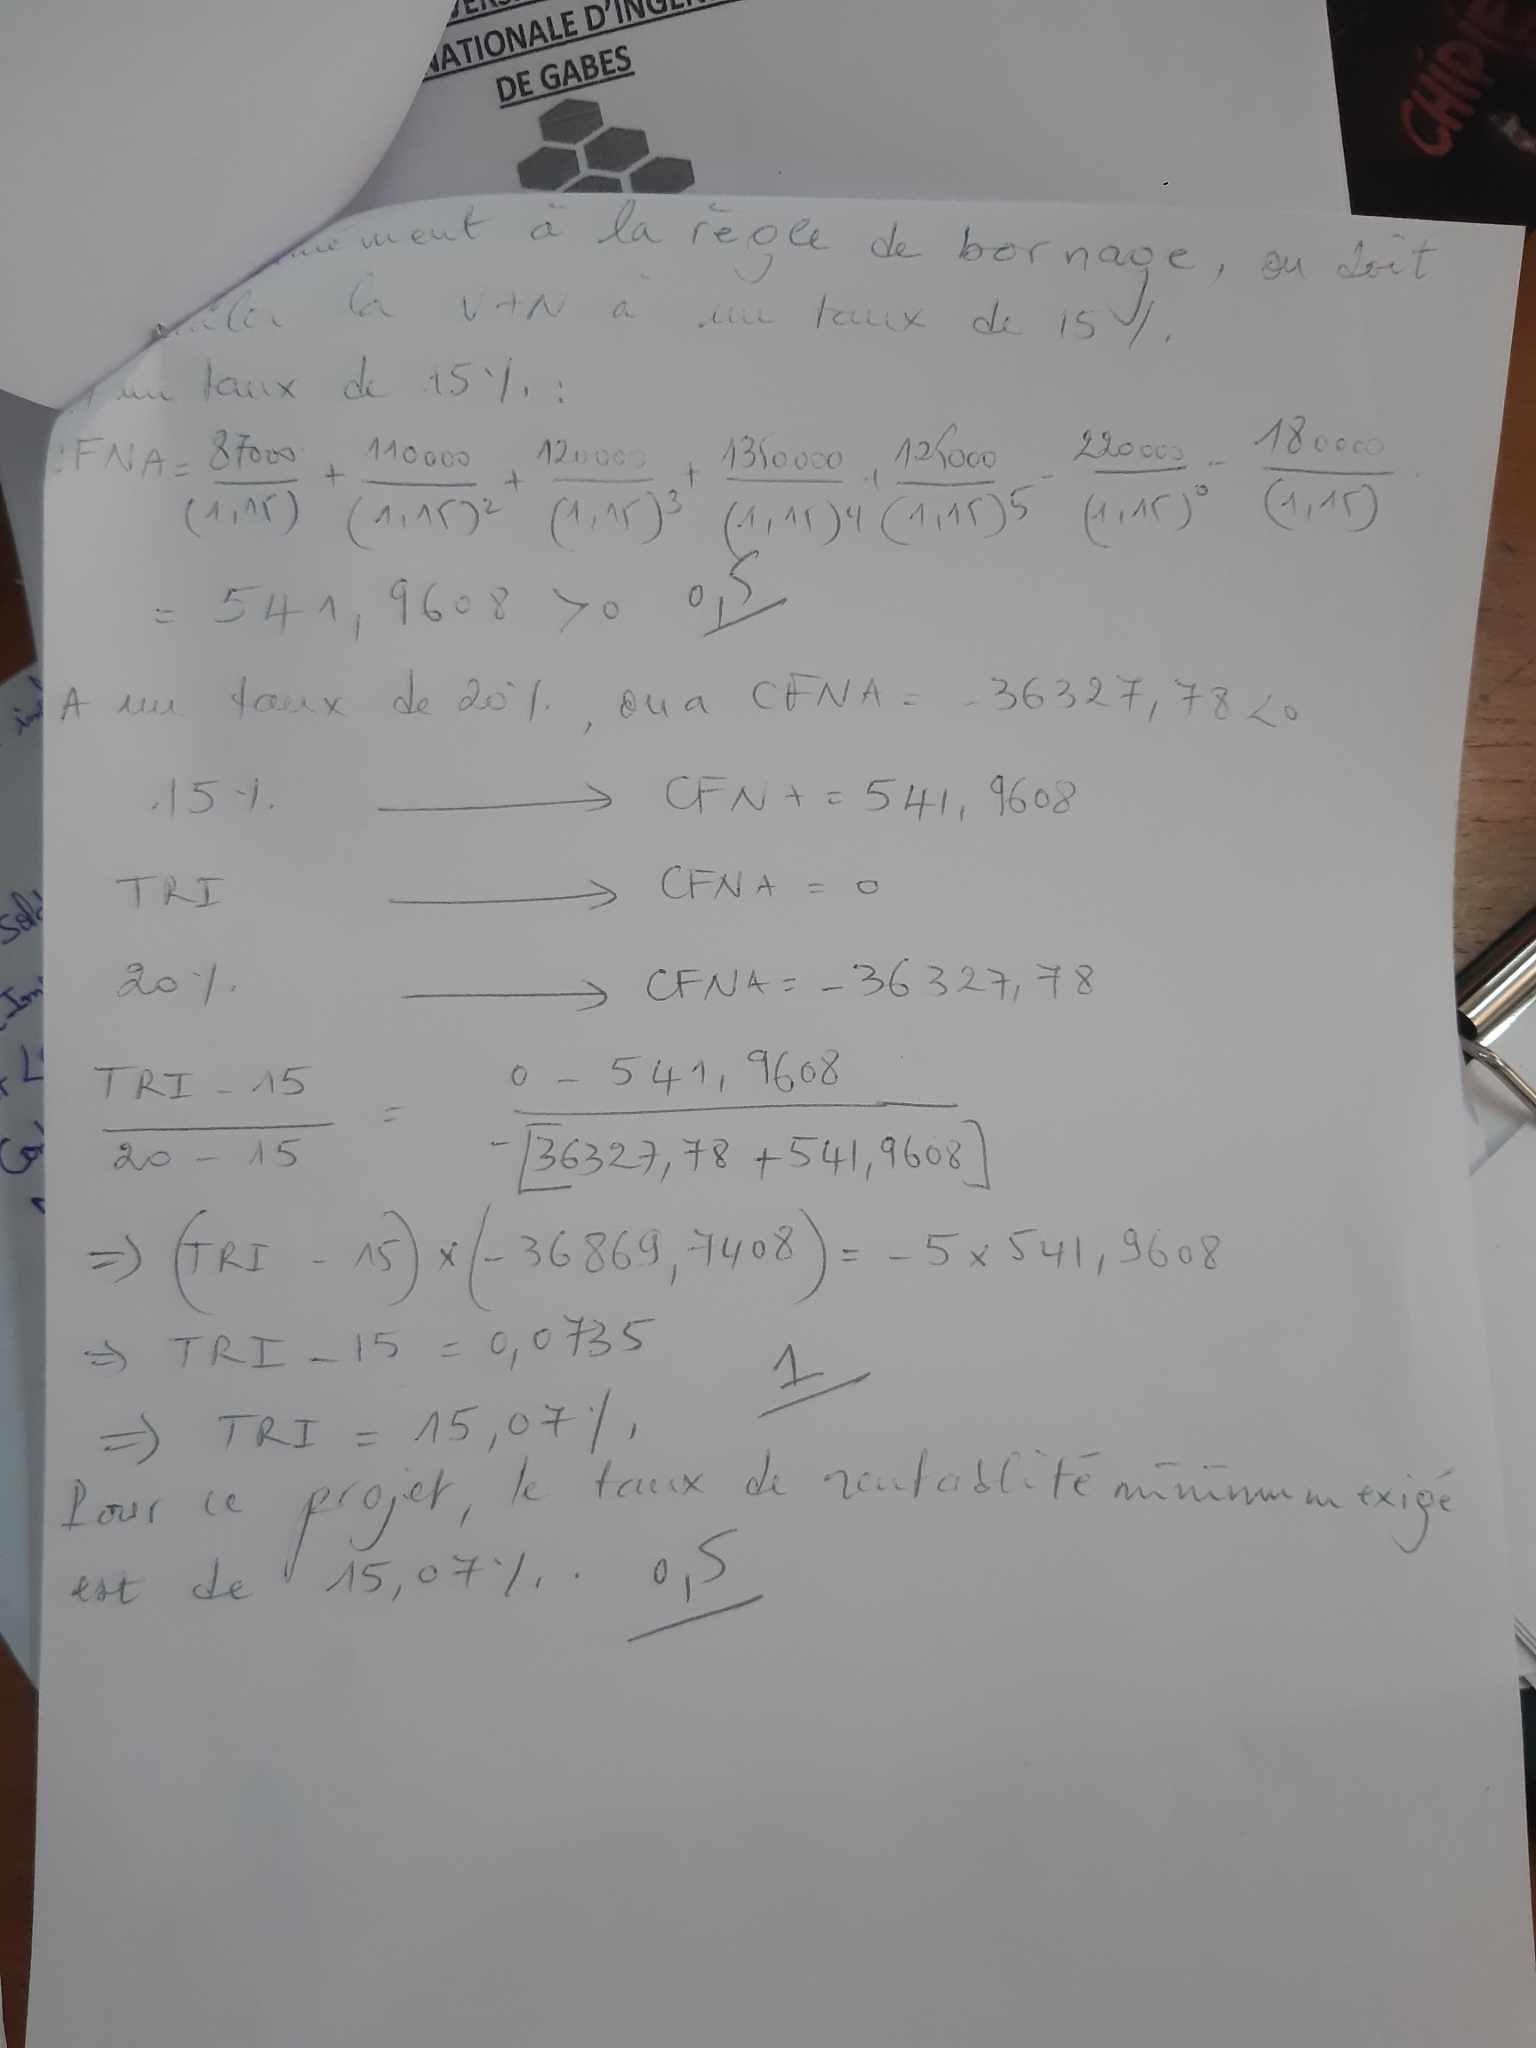 NATIONALE D'INGÉN
DE GABES
CHIPIE
à la règle de bornage, on doit
la VAN à un taux de 15%.
un taux de 15%. :
CFNA = 87000/(1,15) + 110000/(1,15)² + 120000/(1,15)³ + 1350000/(1,15)⁴ + 125000/(1,15)⁵ - 220000/(1,15)⁰ - 180000/(1,15)
= 541,9608 >0 0,5
A un taux de 20%, on a CFNA = -36327,78 <0
15%. → CFNA = 541,9608
TRI → CFNA = 0
20%. → CFNA = -36327,78
TRI - 15 / 20 - 15 = 0 - 541,9608 / -[36327,78 + 541,9608]
⇒ (TRI - 15) × (-36869,7408) = -5 × 541,9608
⇒ TRI - 15 = 0,0735
1
⇒ TRI = 15,07%.
Pour ce projet, le taux de rentablité minimum exigé
est de 15,07%. . 0,5